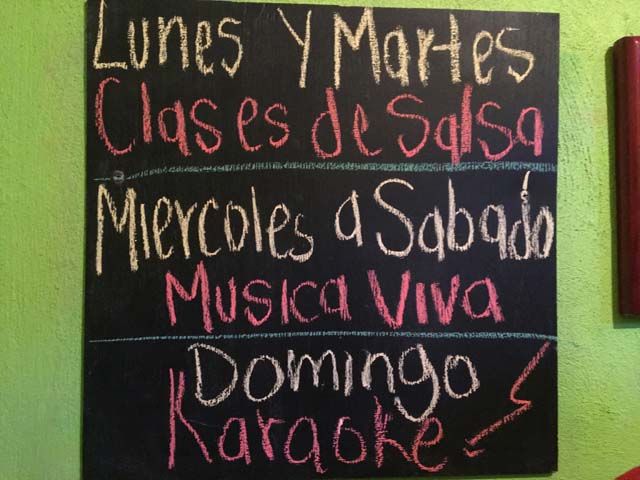 Lunes Y Martes
Clases de Salsa
Miercoles a Sabado
Musica Viva
Domingo
Karaoke